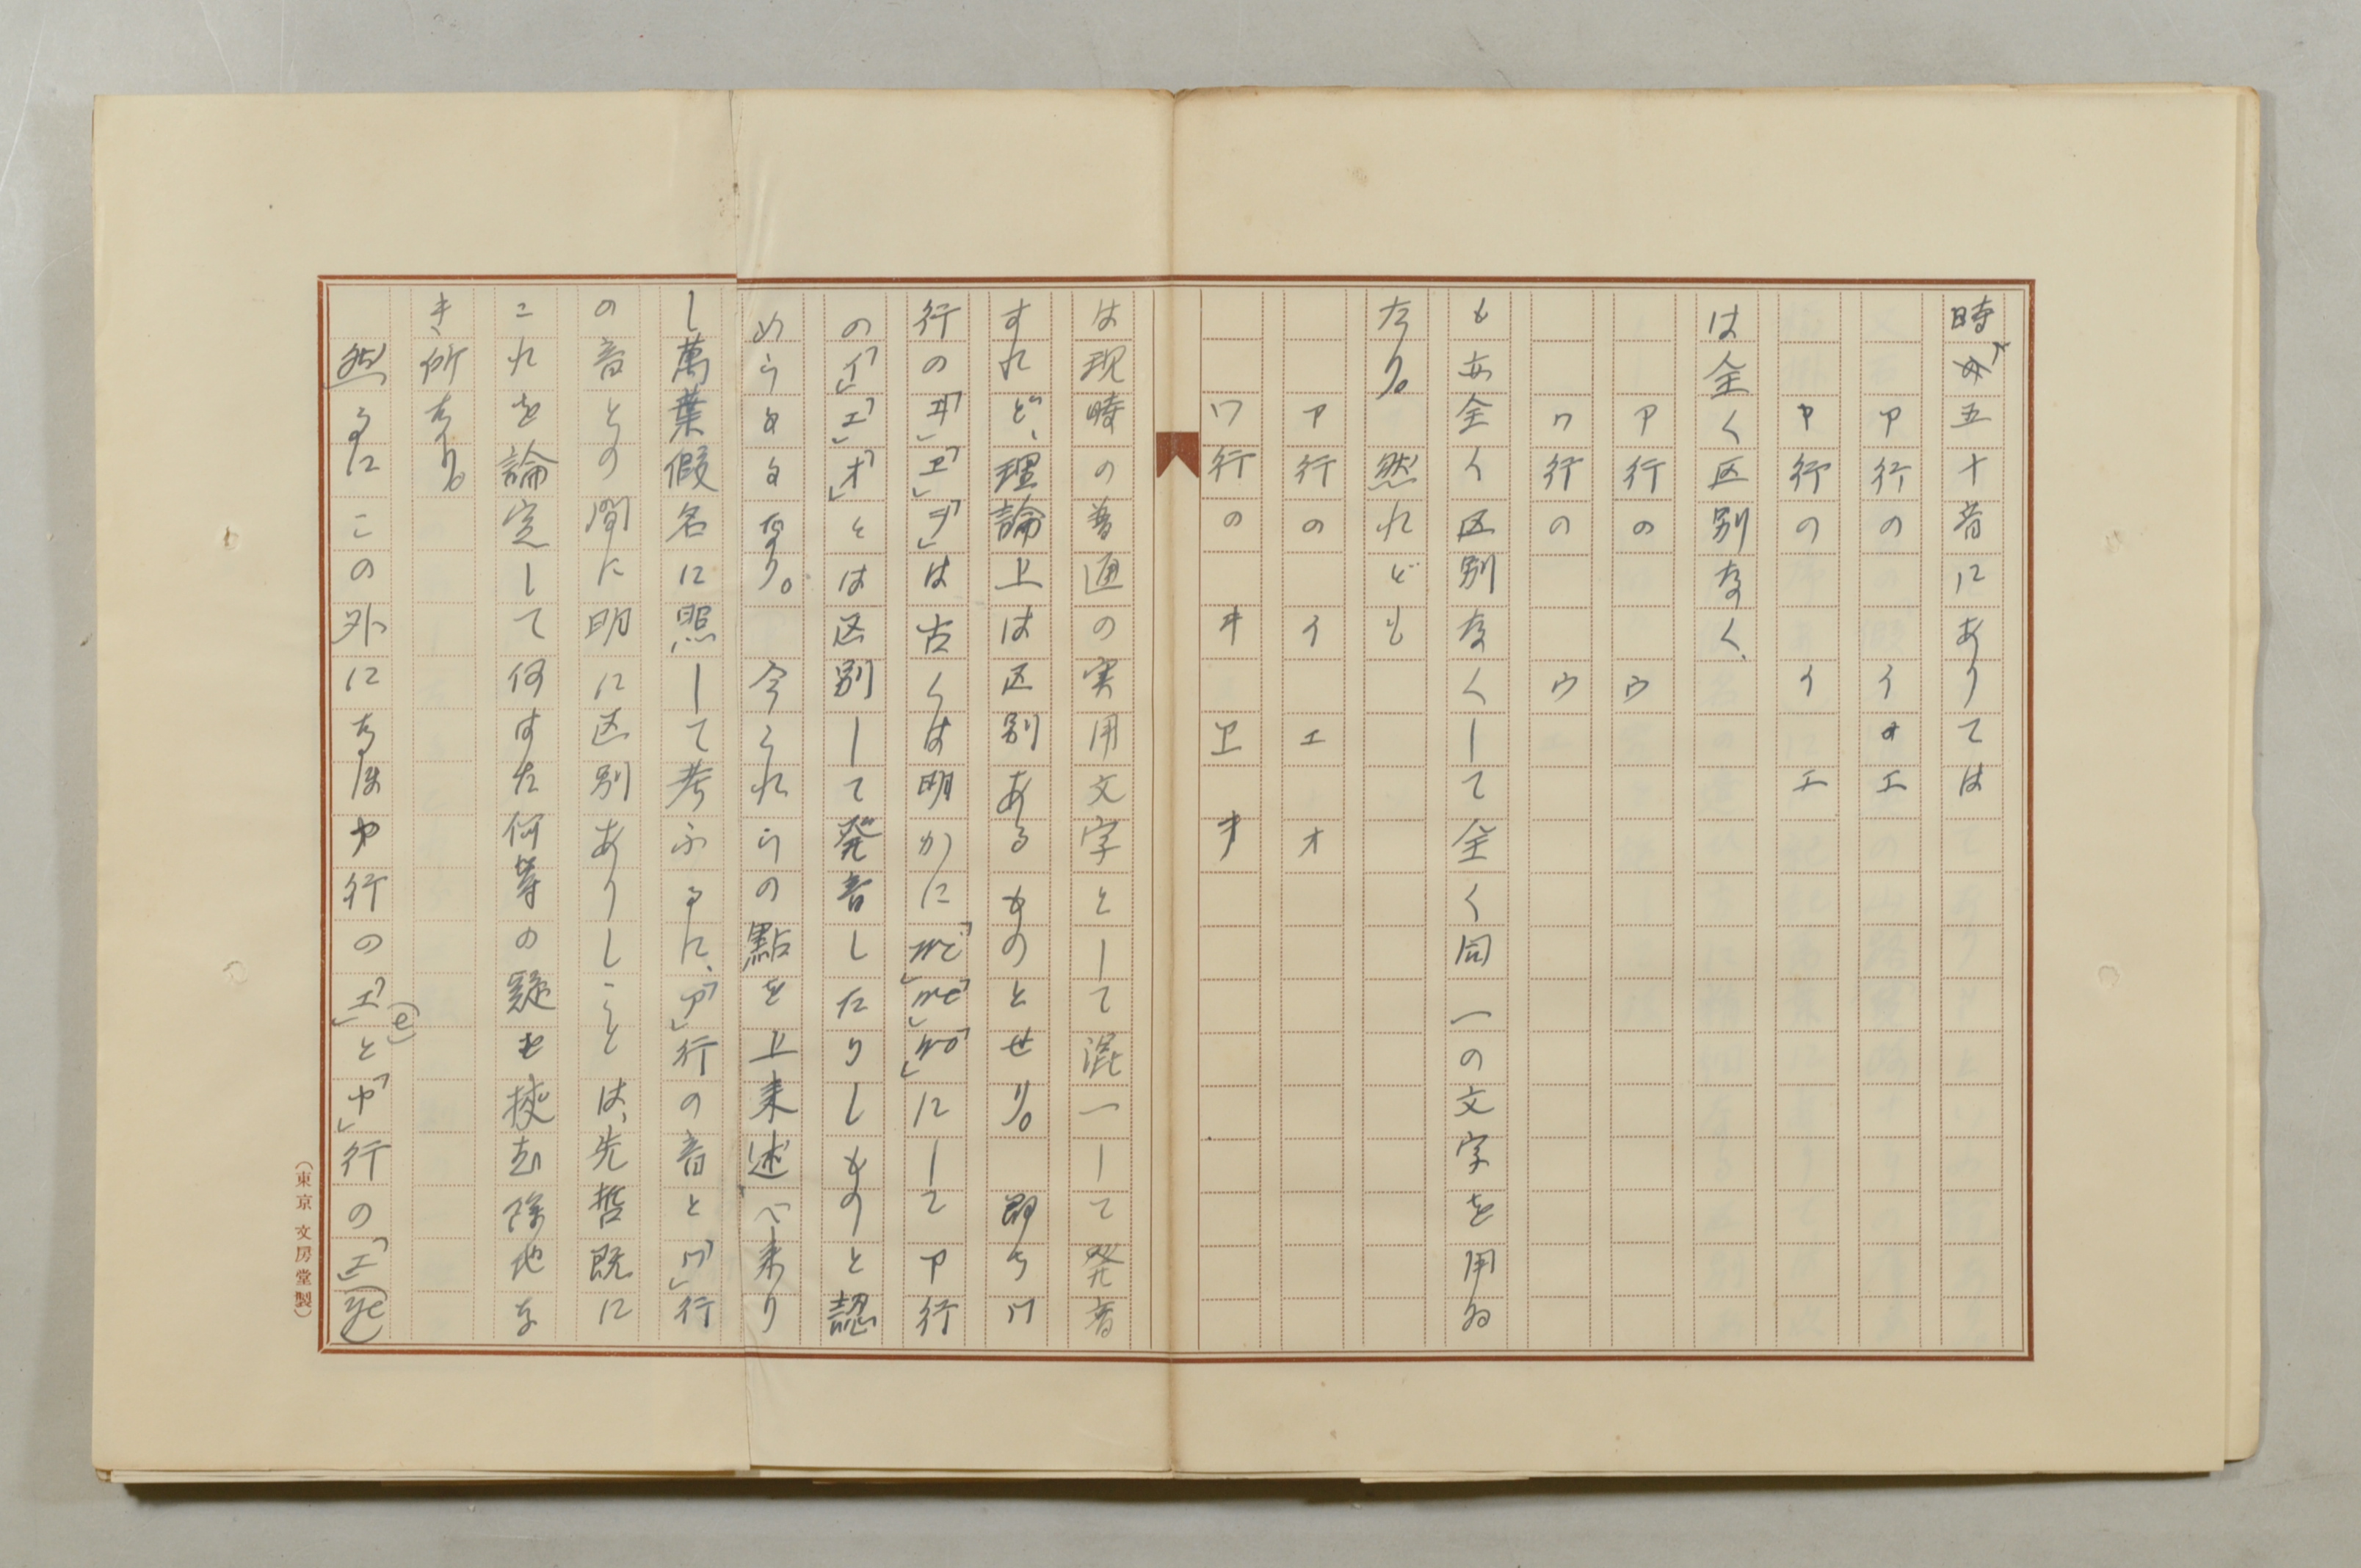 時の五十音にありては
ア行の　イ　エ
ヤ行の　イ　エ
は全く区別なく、
ア行の　ウ
ワ行の　ウ
も亦全く区別なくして全く同一の文字を用ゐ
たり。然れども
ア行の　イ　エ　オ
ワ行の　ヰ　ヱ　ヲ
は現時の普通の実用文字として混一して発音
すれど、理論上は区別あるものとせり。即ちワ
行の「ヰ」「ヱ」「ヲ」は古くは明かに「wi」「we」「wo」にしてア行
の「イ」「エ」「オ」とは区別して発音したりしものと認
めらるるなり。今これらの點を上来述べ来り
し萬葉假名に照して考ふるに、「ア」行の音と「ワ」行
の音との間に明に区別ありしことは、先哲既に
これを論定して何すた何等の疑を挾む餘地な
き所なり。
然るにこの外になほヤ行の「エ」(e)と「ヤ」行の「エ」(ye)
(東京 文房堂製)